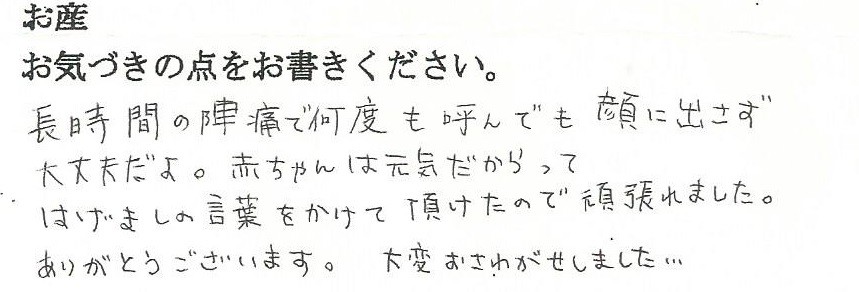 お産
お気づきの点をお書きください。
長時間の陣痛で何度も呼んでも顔に出さず
大丈夫だよ。赤ちゃんは元気だからって
はげましの言葉をかけて頂けたので頑張れました。
ありがとうございます。 大変おさわがせしました…